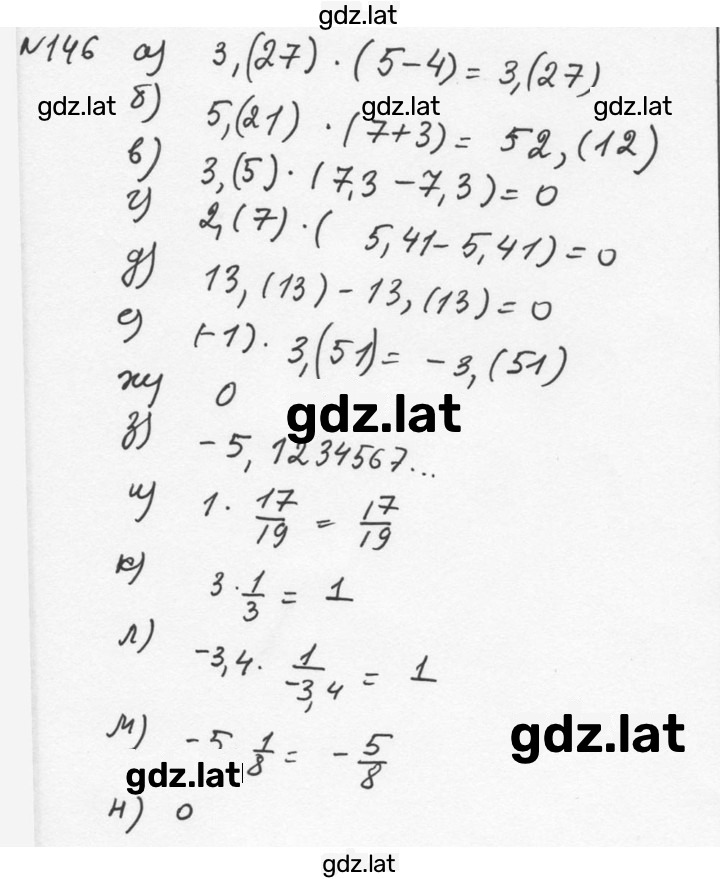 gdz.lat
№146 а) 3,(27) · (5-4) = 3,(27)
gdz.lat gdz.lat gdz.lat
б) 5,(21) · (7+3) = 52,(12)
в) 3,(5) · (7,3 - 7,3) = 0
г) 2,(7) · ( 5,41 - 5,41) = 0
д) 13,(13) - 13,(13) = 0
е) (-1) · 3,(51) = -3,(51)
ж) 0
gdz.lat
з) -5,1234567...
и) 1 · 17/19 = 17/19
к) 3 · 1/3 = 1
л) -3,4 · 1/-3,4 = 1
м) -5 1/8 = -5/8
gdz.lat
gdz.lat
н) 0
gdz.lat